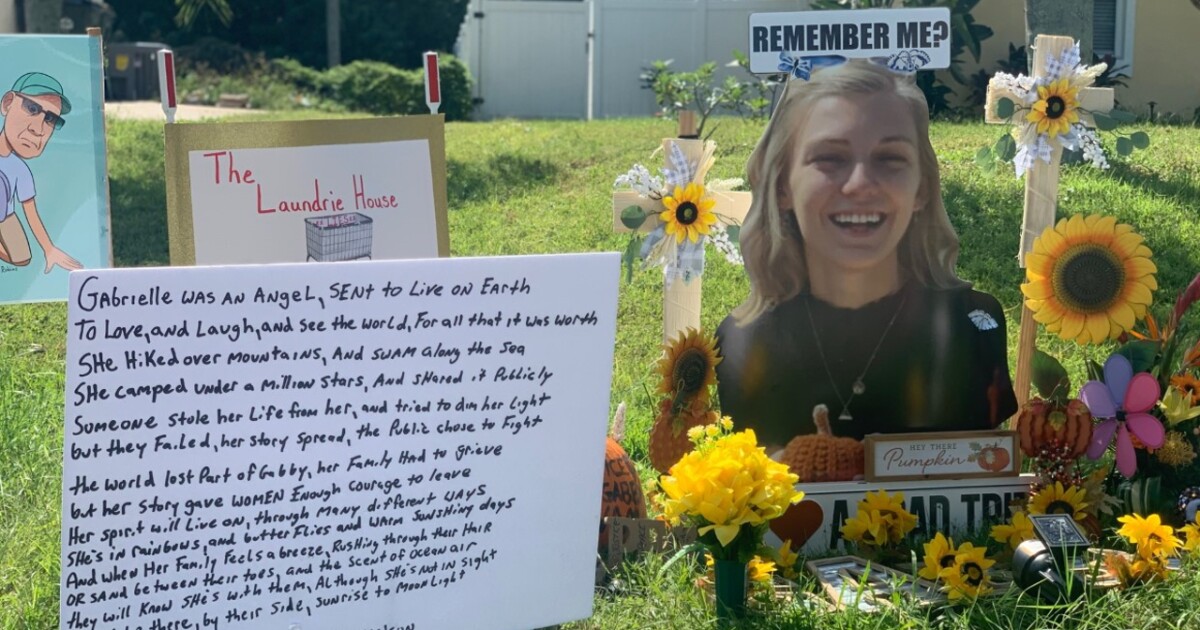 REMEMBER ME?
The
Laundrie House
LIES
GABRIELLE WAS AN ANGEL, SENT to Live on Earth
To Love, and Laugh, and see the world, For all that it was worth
SHe HiKed over mountains, And swam along the Sea
SHe camped under a million stars, And sHared it Publicly
Someone Stole her Life from her, and tried to dim her Light
but they Failed, her story spread, the Public chose to Fight
the world lost Part of Gabby, her Family Had to grieve
but her Story gave WOMEN Enough courage to leave
Her spirit will Live on, through Many different ways
SHe's in rainbows, and butterflies and warm sunshiny days
And when Her Family Feels a breeze, Rushing through their Hair
OR Sand between their toes, and the Scent of Ocean air
they will Know SHe's with them, Although SHe's not in Sight
there, by their Side, sunrise to Moon Light
HEY THERE
Pumpkin
GABE